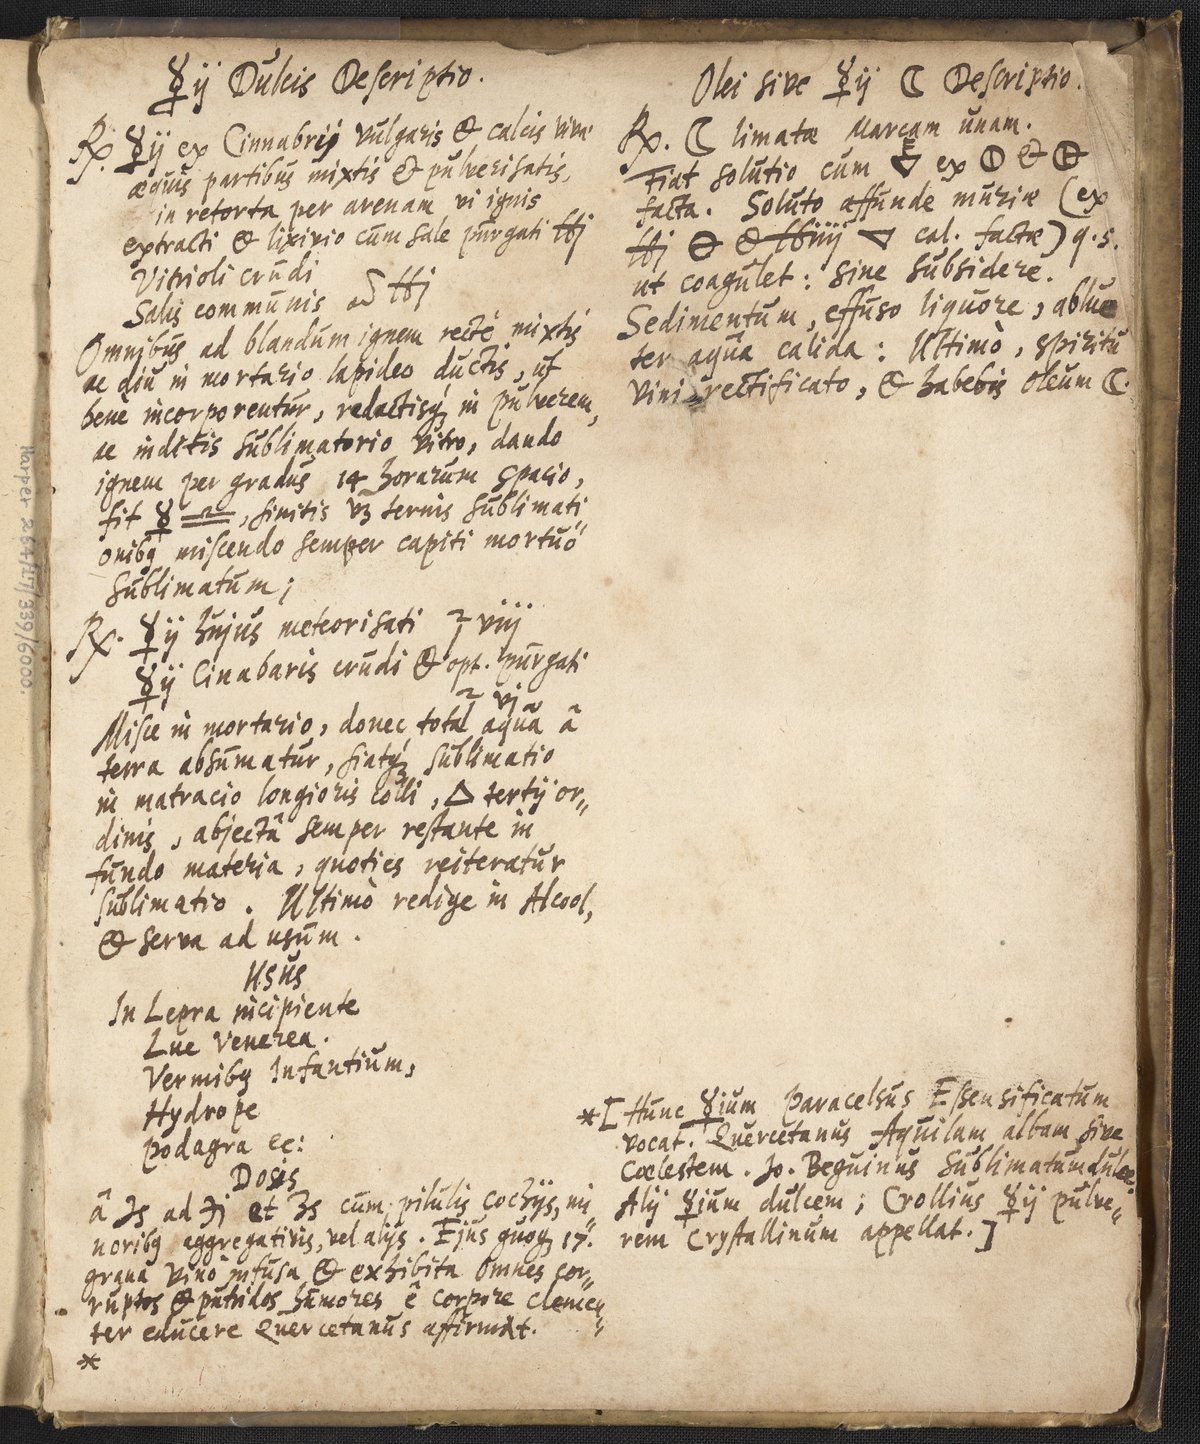 ☿ij Dulcis Descriptio.
℞. ☿ij ex Cinnabrij vulgaris & calcis vivæ
æquis partibus mixtis & pulverisatis,
in retorta per arenam vi ignis
extracti & lixivio cum sale pūrgati ℔j
Vitrioli crūdi
Salis communis ℔j
Omnibus ad blandum ignem rectè mixtis
ac diu in mortario lapideo ductis, ut
bene incorporentur, redactisq; in pūlverem,
ac inditis sublimatorio vitro, dando
ignem per gradus 14 horarum spacio,
fit ☿ , finitis ternis sublimati
onibq miscendo semper capiti mortuo
sūblimatum;
℞. ☿ij hujus meteorisati ℥ viij
☿ij Cinabaris crudi & opt. pūrgati
℥ vj
Misce in mortario, donec tota aqūa â
terra absūmatur, fiatq; sublimatio
in matracio longioris colli, 🜂 tertij or„
dinis, abjectâ semper restante in
fundo materia, quoties reiteratur
sublimatio. Ultimò redige in Alcool,
& serva ad usūm.
Usūs
In Lepra incipiente
Lue Venerea.
Vermibq Infantium,
Hydrope
podagra &c:
Dosis
â ℈s ad ℈j et ʒs cum pilulis Cochijs, mi„
noribq aggregativis, vel alijs. Ejus quoq; 17.
grana vino infusa & exhibita omnes cor„
ruptos & putridos hūmores ê corpore clemen„
ter edūcere Quercetanus affirmat.
*
Olei sive ☿ij ☾ Descriptio.
℞. ☾ limatæ Marcam unam.
Fiat solutio cum 🜄 ex 🜕 & 🜨
facta. Soluto affunde mūriæ (ex
℔j 🜔 & ℔iiij 🜄 cal. factæ) q. s.
ut coagulet: sine subsidere.
Sedimentum, effuso liquore, ablue
ter aqūa calida: Ultimò, spiritu
vini rectificato, & habebis oleum ☾.
*[Hunc ☿ium Paracelsus Essensificatum
vocat. Quercetanus Aquilam albam sive
Cœlestem. Jo. Beguinus Sublimatum dulce
Alij ☿ium dulcem; Crollius ☿ij pulve„
rem Crystallinum appellat.]
Harper 264/17/339/6000.